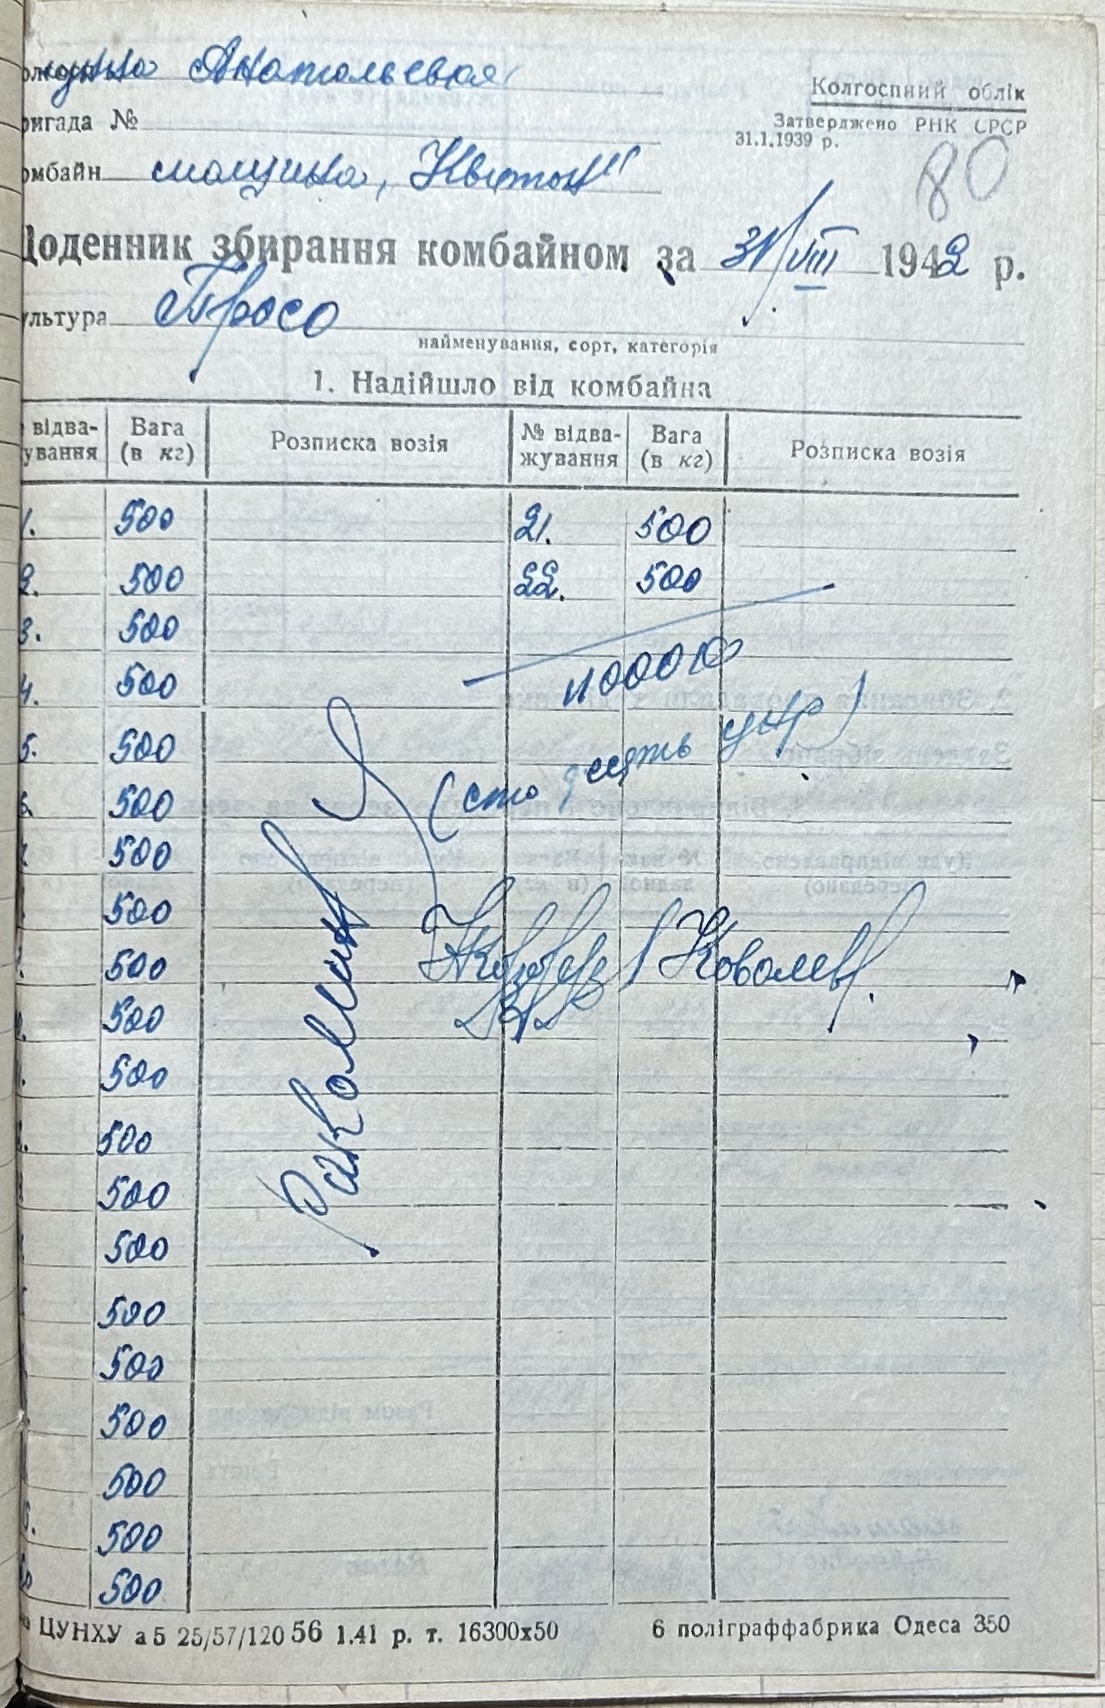 Анатольевая
Колгоспний облік
ригада №
Затверджено РНК СРСР
31.1.1939 р.
омбайн
80
Щоденник збирання комбайном за 31/VIII 1942 р.
ультура Просо
найменування, сорт, категорія
1. Надійшло від комбайна
відва-
ування Вага
(в кг) Розписка возія № відва-
жування Вага
(в кг) Розписка возія
1. 500 21. 500
2. 500 22. 500
3. 500
4. 500 11000
5. 500 (сто десять цнр)
6. 500
500
500
500 Ковалев
500
500
500
500
500
500
500
500
500
500
500
ЦУНХУ а5 25/57/120 56 1.41 р. т. 16300х50 6 поліграффабрика Одеса 350